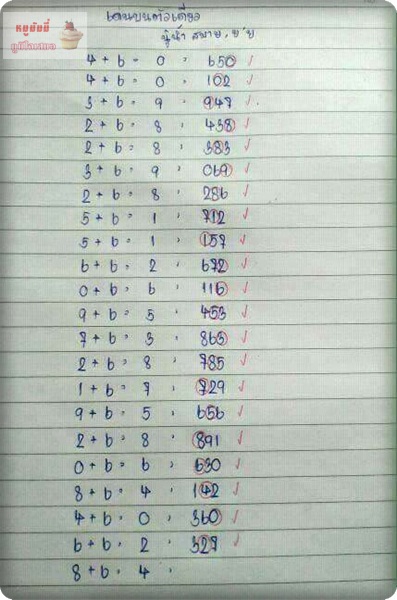 หมูยัยมี่
เด่นบนตัวเดียว
4 + 6 = 0 , 650 ✓
4 + 6 = 0 , 102 ✓
3 + 6 = 9 , 947 ✓
2 + 6 = 8 , 438 ✓
2 + 6 = 8 , 383 ✓
3 + 6 = 9 , 069 ✓
2 + 6 = 8 , 286 ✓
5 + 6 = 1 , 712 ✓
5 + 6 = 1 , 157 ✓
6 + 6 = 2 , 672 ✓
0 + 6 = 6 , 116 ✓
9 + 6 = 5 , 453 ✓
7 + 6 = 3 , 863 ✓
2 + 6 = 8 , 785 ✓
1 + 6 = 7 , 729 ✓
9 + 6 = 5 , 656 ✓
2 + 6 = 8 , 891 ✓
0 + 6 = 6 , 630 ✓
8 + 6 = 4 , 142 ✓
4 + 6 = 0 , 360 ✓
6 + 6 = 2 , 327 ✓
8 + 6 = 4 ,